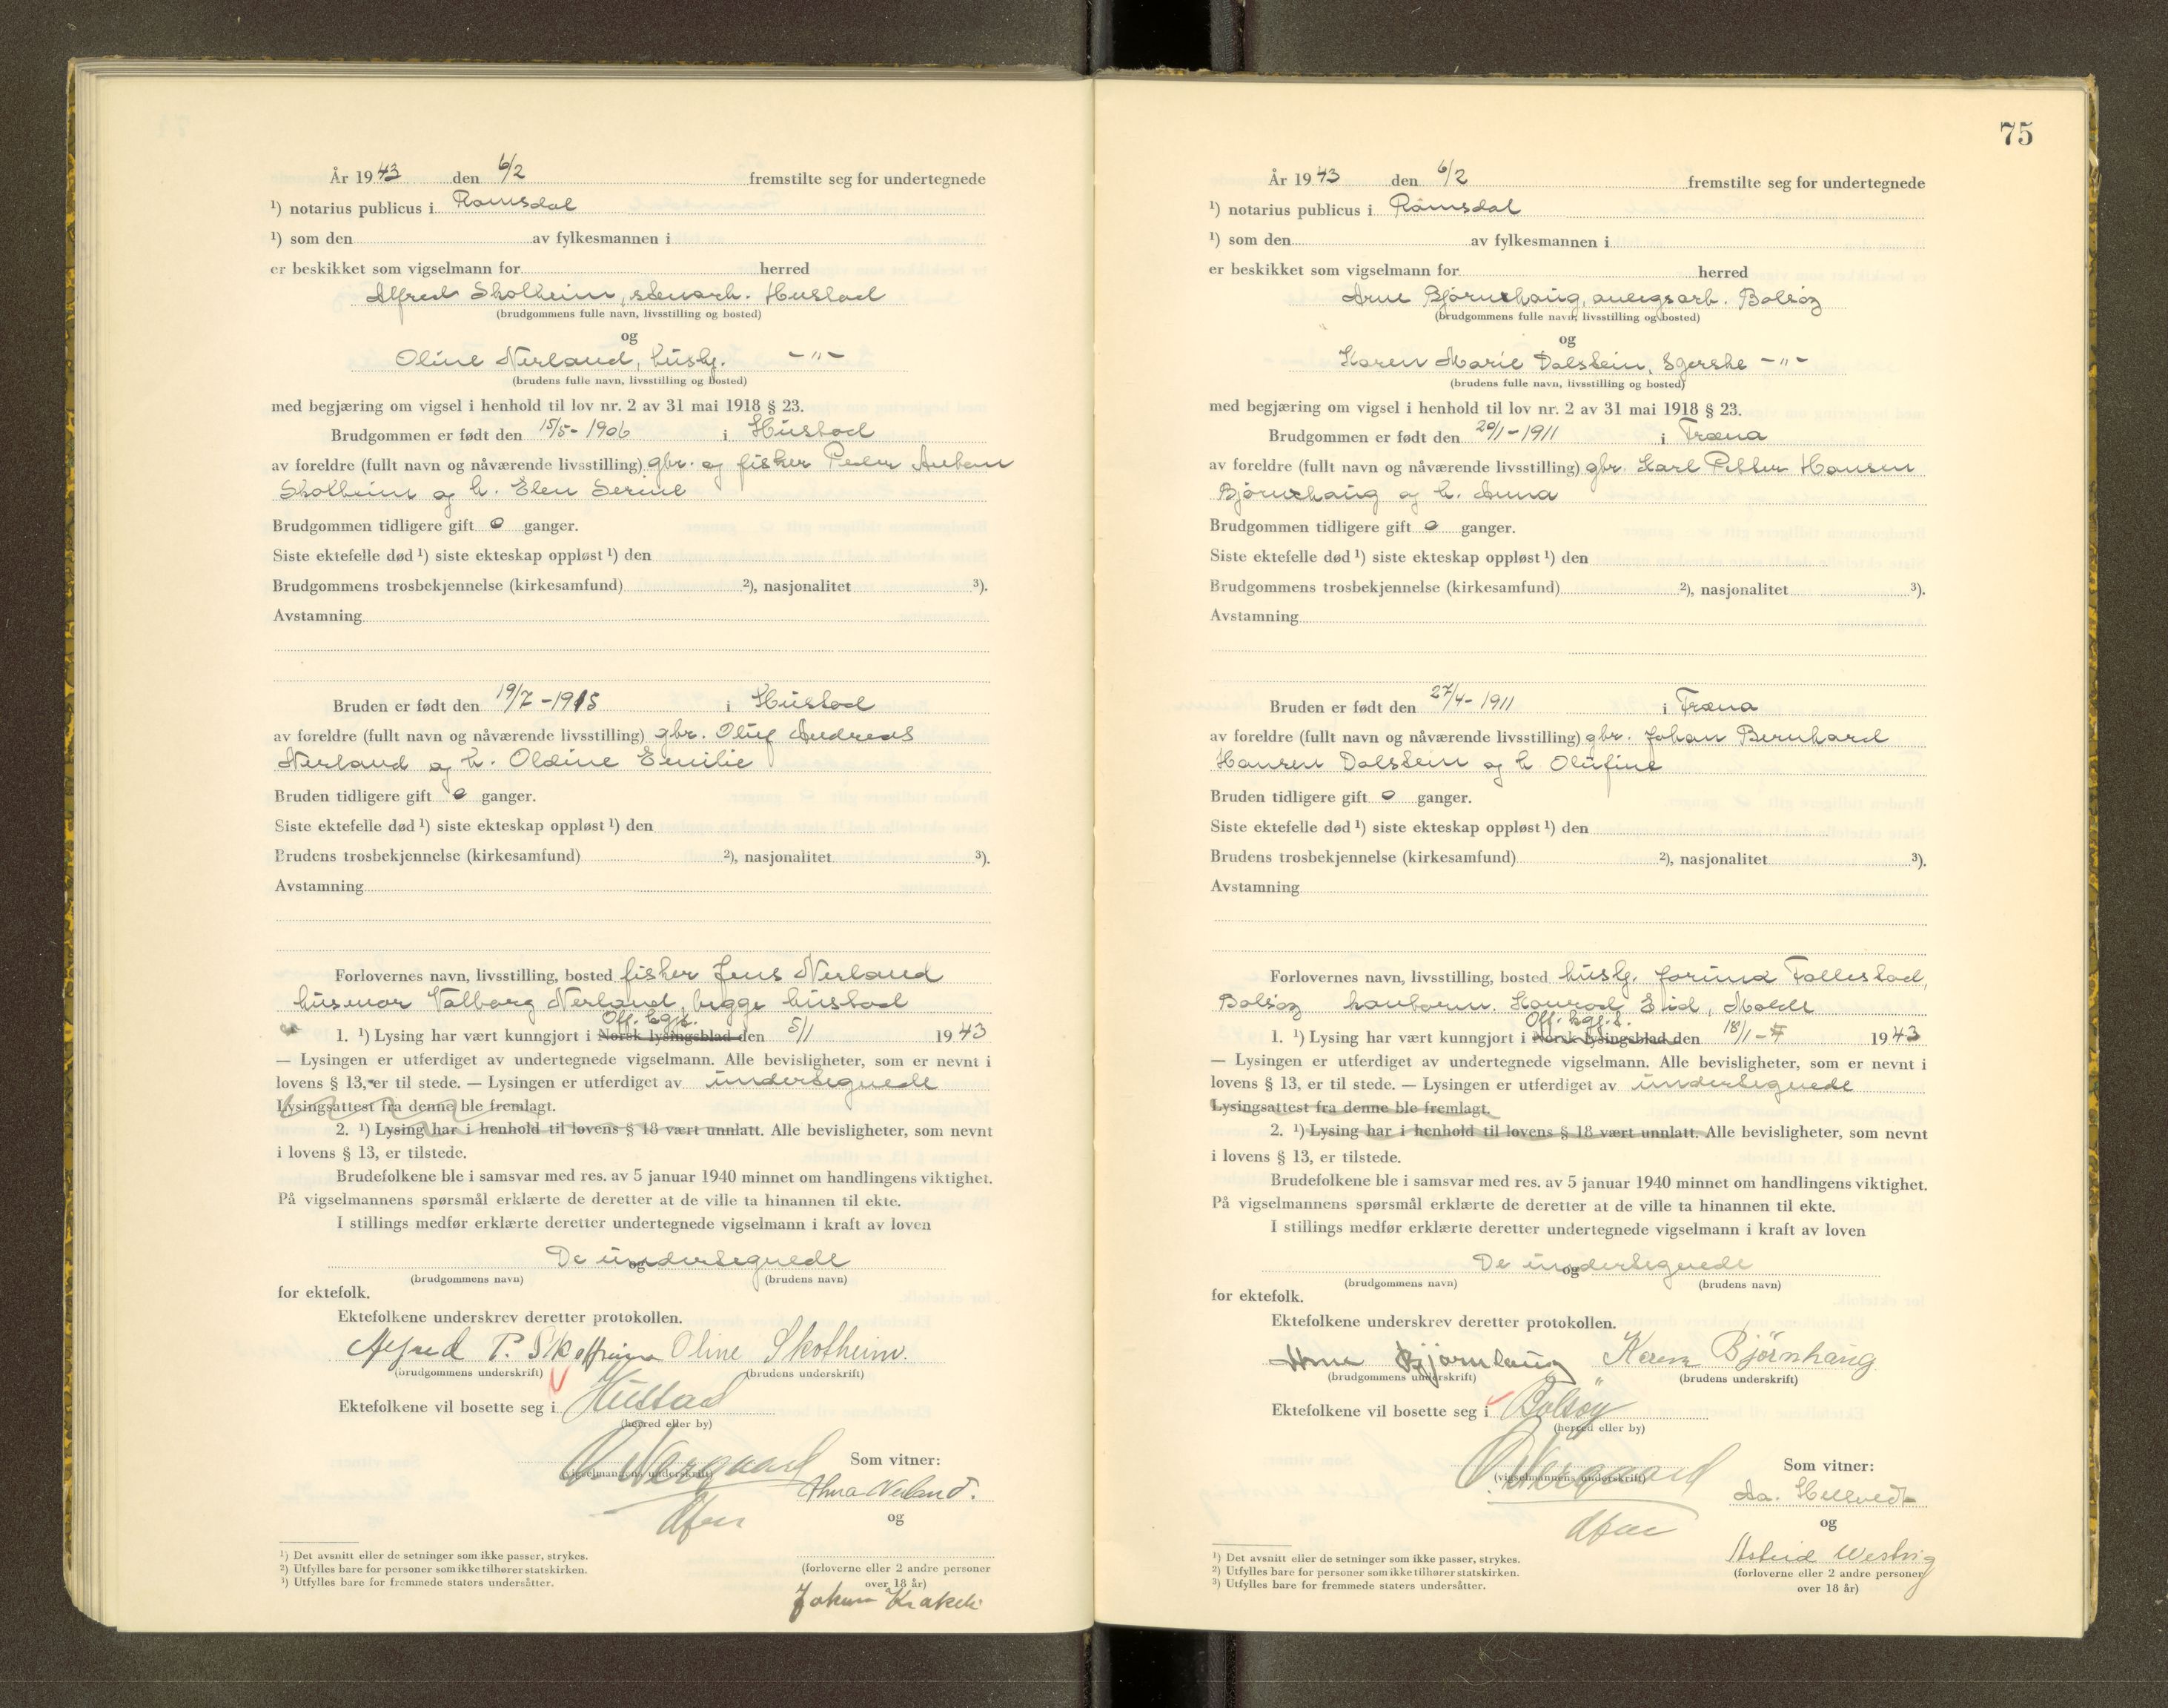 År 1943 den 6/2 fremstilte seg for undertegnede
¹) notarius publicus i Romsdal
¹) som den av fylkesmannen i
er beskikket som vigselmann for herred
Alfred Skotheim, stenarb. Hustad
(brudgommens fulle navn, livsstilling og bosted)
og
Oline Nerland, hush. -"-
(brudens fulle navn, livsstilling og bosted)
med begjæring om vigsel i henhold til lov nr. 2 av 31 mai 1918 § 23.
Brudgommen er født den 15/5-1906 i Hustad
av foreldre (fullt navn og nåværende livsstilling) gbr. og fisker Peder Anton
Skotheim og h. Elen Serine
Brudgommen tidligere gift 0 ganger.
Siste ektefelle død ¹) siste ekteskap oppløst ¹) den
Brudgommens trosbekjennelse (kirkesamfund) ²), nasjonalitet ³).
Avstamning
Bruden er født den 19/7-1915 i Hustad
av foreldre (fullt navn og nåværende livsstilling) gbr. Oluf Andreas
Nerland og h. Oldine Emilie
Bruden tidligere gift 0 ganger.
Siste ektefelle død ¹) siste ekteskap oppløst ¹) den
Brudens trosbekjennelse (kirkesamfund) ²), nasjonalitet ³).
Avstamning
Forlovernes navn, livsstilling, bosted fisker Jens Nerland
husmor Valborg Nerland, begge hustad
Off. kgj.
1. ¹) Lysing har vært kunngjort i Norsk lysingsblad den 5/1 1943
— Lysingen er utferdiget av undertegnede vigselmann. Alle bevisligheter, som er nevnt i
lovens § 13, er til stede. — Lysingen er utferdiget av undertegnede
Lysingsattest fra denne ble fremlagt.
2. ¹) Lysing har i henhold til lovens § 18 vært unnlatt. Alle bevisligheter, som nevnt
i lovens § 13, er tilstede.
Brudefolkene ble i samsvar med res. av 5 januar 1940 minnet om handlingens viktighet.
På vigselmannens spørsmål erklærte de deretter at de ville ta hinannen til ekte.
I stillings medfør erklærte deretter undertegnede vigselmann i kraft av loven
De undertegnede
og
(brudgommens navn) (brudens navn)
for ektefolk.
Ektefolkene underskrev deretter protokollen.
Alfred P. Skotheim Oline Skotheim.
(brudgommens underskrift) (brudens underskrift)
Ektefolkene vil bosette seg i Hustad
(herred eller by)
O. Nergaard Som vitner:
(vigselmannens underskrift)
Alma Nerland.
og
¹) Det avsnitt eller de setninger som ikke passer, strykes.
²) Utfylles bare for personer som ikke tilhører statskirken.
³) Utfylles bare for fremmede staters undersåtter.
(forloverne eller 2 andre personer
over 18 år)
Johan
75
År 1943 den 6/2 fremstilte seg for undertegnede
¹) notarius publicus i Romsdal
¹) som den av fylkesmannen i
er beskikket som vigselmann for herred
Arne Bjørnhaug, anlegsarb. Bolsøy
(brudgommens fulle navn, livsstilling og bosted)
og
Karen Marie Dalstein, Sgerske -"-
(brudens fulle navn, livsstilling og bosted)
med begjæring om vigsel i henhold til lov nr. 2 av 31 mai 1918 § 23.
Brudgommen er født den 20/1-1911 i Træna
av foreldre (fullt navn og nåværende livsstilling) gbr. Karl Petter Hansen
Bjørnhaug og h. Anna
Brudgommen tidligere gift 0 ganger.
Siste ektefelle død ¹) siste ekteskap oppløst ¹) den
Brudgommens trosbekjennelse (kirkesamfund) ²), nasjonalitet ³).
Avstamning
Bruden er født den 27/4-1911 i Træna
av foreldre (fullt navn og nåværende livsstilling) gbr. Johan Bernhard
Hansen Dalstein og h Olufine
Bruden tidligere gift 0 ganger.
Siste ektefelle død ¹) siste ekteskap oppløst ¹) den
Brudens trosbekjennelse (kirkesamfund) ²), nasjonalitet ³).
Avstamning
Forlovernes navn, livsstilling, bosted hush. Jorund Tollestad,
Bolsøy kontorm. Konrad Eid, Molde
Off. kgj.
1. ¹) Lysing har vært kunngjort i Norsk lysingsblad den 18/1 1943
— Lysingen er utferdiget av undertegnede vigselmann. Alle bevisligheter, som er nevnt i
lovens § 13, er til stede. — Lysingen er utferdiget av undertegnede
Lysingsattest fra denne ble fremlagt.
2. ¹) Lysing har i henhold til lovens § 18 vært unnlatt. Alle bevisligheter, som nevnt
i lovens § 13, er tilstede.
Brudefolkene ble i samsvar med res. av 5 januar 1940 minnet om handlingens viktighet.
På vigselmannens spørsmål erklærte de deretter at de ville ta hinannen til ekte.
I stillings medfør erklærte deretter undertegnede vigselmann i kraft av loven
De undertegnede
og
(brudgommens navn) (brudens navn)
for ektefolk.
Ektefolkene underskrev deretter protokollen.
Arne Bjørnhaug Karen Bjørnhaug
(brudgommens underskrift) (brudens underskrift)
Ektefolkene vil bosette seg i Bolsöy
(herred eller by)
O. Nergaard Som vitner:
(vigselmannens underskrift)
Aa. Hellvedt
og
Astrid Westvig
¹) Det avsnitt eller de setninger som ikke passer, strykes.
²) Utfylles bare for personer som ikke tilhører statskirken.
³) Utfylles bare for fremmede staters undersåtter.
(forloverne eller 2 andre personer
over 18 år)